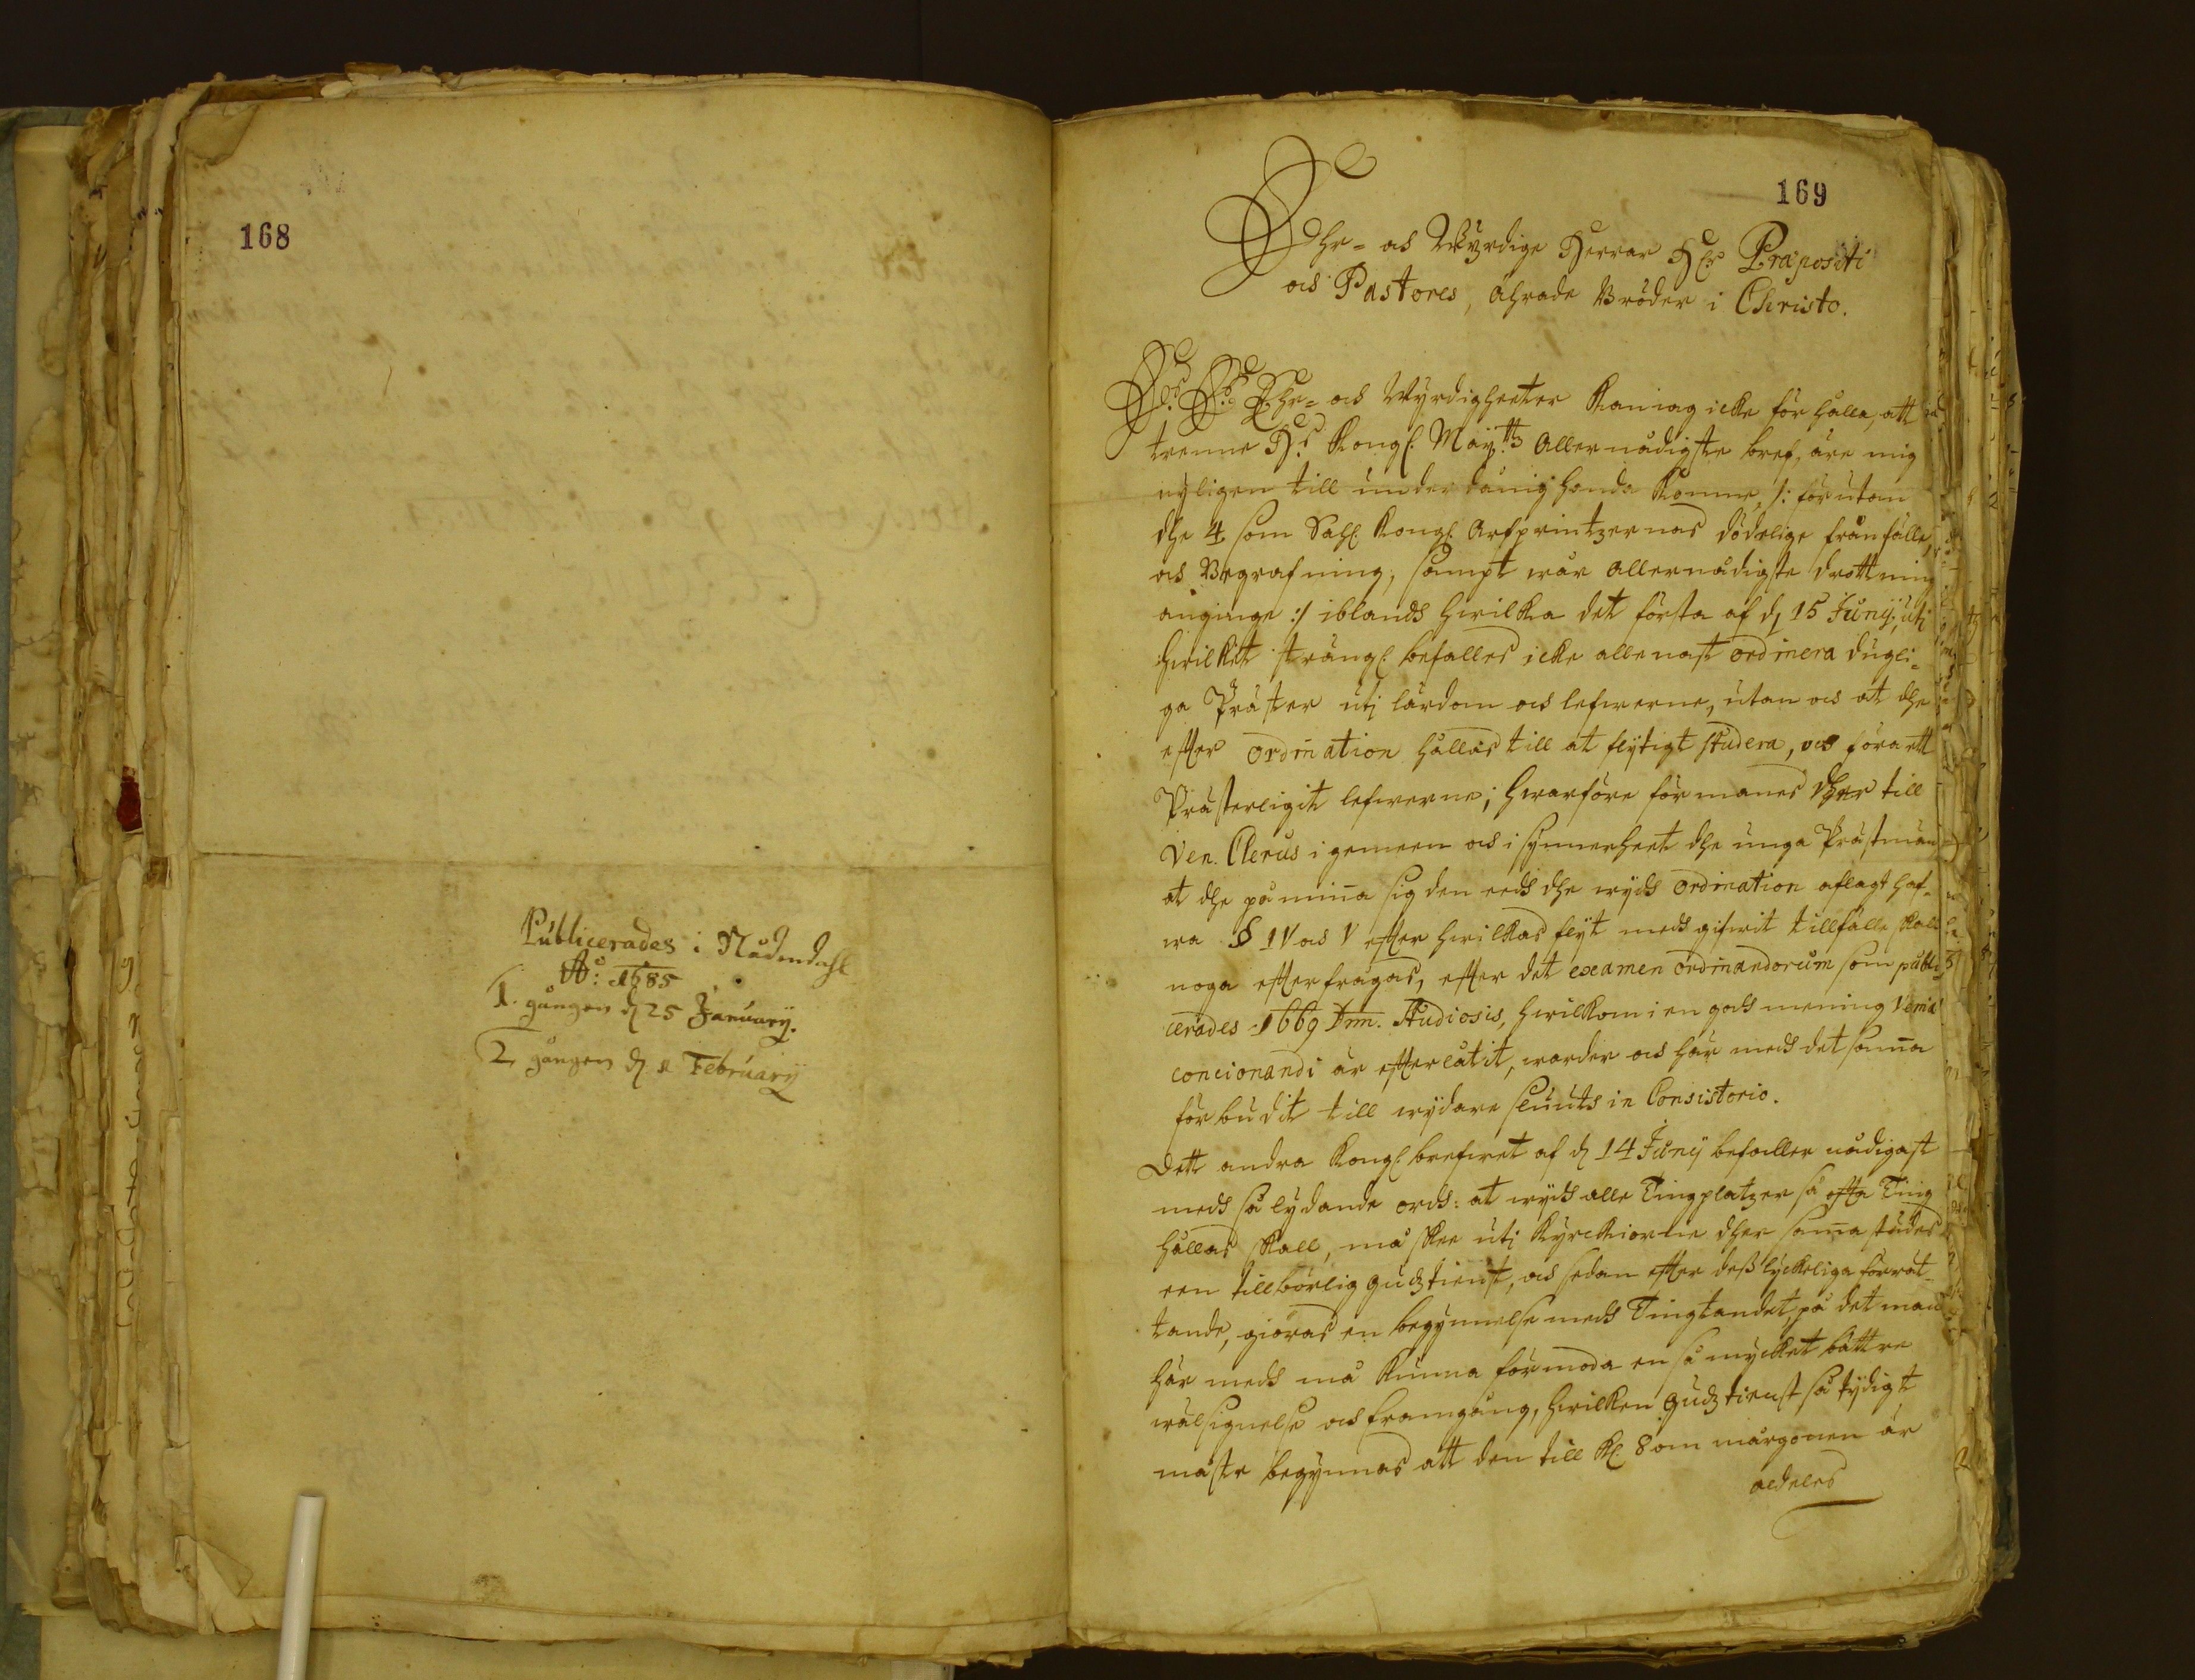 168
Publicerades i Nådendahl
Aō: 1685
1. gången d 25 January.
2 gången d. 1 February
169
Ehr- och Wyrdige Herrar H:r Præpositi
och Pastores, ährade Bröder i Christo.
Ehr- och Wyrdigheeter kan iag icke förhålla, att
trenne H:s Kongl. May:ttz allernådigste bref, äre mig
nyligen till underdånig handa komne, /: förutom
dhe 4 som Sahl. Kongl. Arfprintzernas dödelige frånfälle,
och Begrafning, sampt wår allernådigste drottning
anginge :/ iblandh hwilka det första af d 15 Junij, uti
hwilket strängl. befalles icke allenast ordinera dugli-
ga Präster uti lärdom och lefwerne, utan och at dhe
effter ordination hållas till at flytigt studera, och föra ett
Prästerligit lefwerne; hwarföre förmanes dher till
Ven. Clerus i gemeen och i synnerheet dhe unga Prästmän
at dhe påmiña sig den eedh dhe wydh ordination aflagt haf-
wa § IV och V effter hwilkas flyt medh gifwit tillfälle skall
noga effterfrågas, effter det examen ordinandorum som publi
cerades 1669 Dnn. Studiosis, hwilkom i en godh mening venia
concionandi är effterlåtit, warder och här medh det samma
förbudit till wydare sluuts in Consistorio.
Dett andra Kongl. brefwet af d 14 Junij befaller nådigast
medh så lydande ordh: at wydh alle Tingplatzer så offta Ting
hållas skall, må skee uti kyrckiorne dher samma städes
een tillbörlig gudztienst, och sedan effter dess lyckeliga förrät-
tande, giöras en begynnelse medh Tingtandet, på det man
här medh må kunna förmoda en så mycket bättre
wälsignelse och framgång, hwilken gudztienst så tydigt
måste begynnas att den till kl. 8 om morgonen är
aldeles